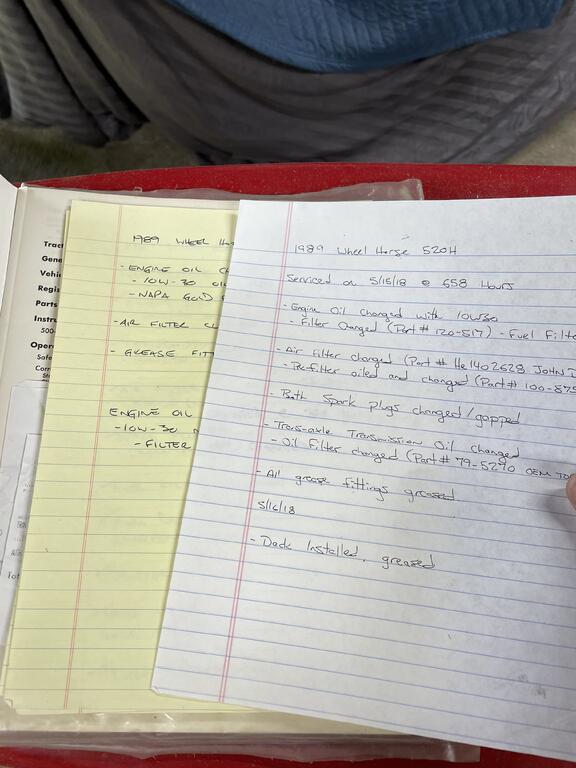 Tract
Gene
Vehi
Regis
Parts
Instru
500-
Oper
Safe
Corr
1989 WHEEL HO
- ENGINE OIL C
- 10W-30 OIL
- NAPA GOLD
- AIR FILTER CL
- GREASE FITT
ENGINE OIL
- 10W-30
- FILTER
1989 Wheel Horse 520H
Serviced on 5/15/18 @ 658 Hours
- Engine Oil changed with 10W30
- Filter Changed (Part # 120-517) - Fuel Filte
- Air filter changed (Part # HE1402628 JOHN D
- Pre-filter oiled and changed (Part # 100-875
- Both Spark plugs changed/gapped
- Trans-axle Transmission Oil Changed
- Oil Filter changed (Part # 79-5290 OEM TO
- All grease fittings greased
5/16/18
- Deck Installed, greased